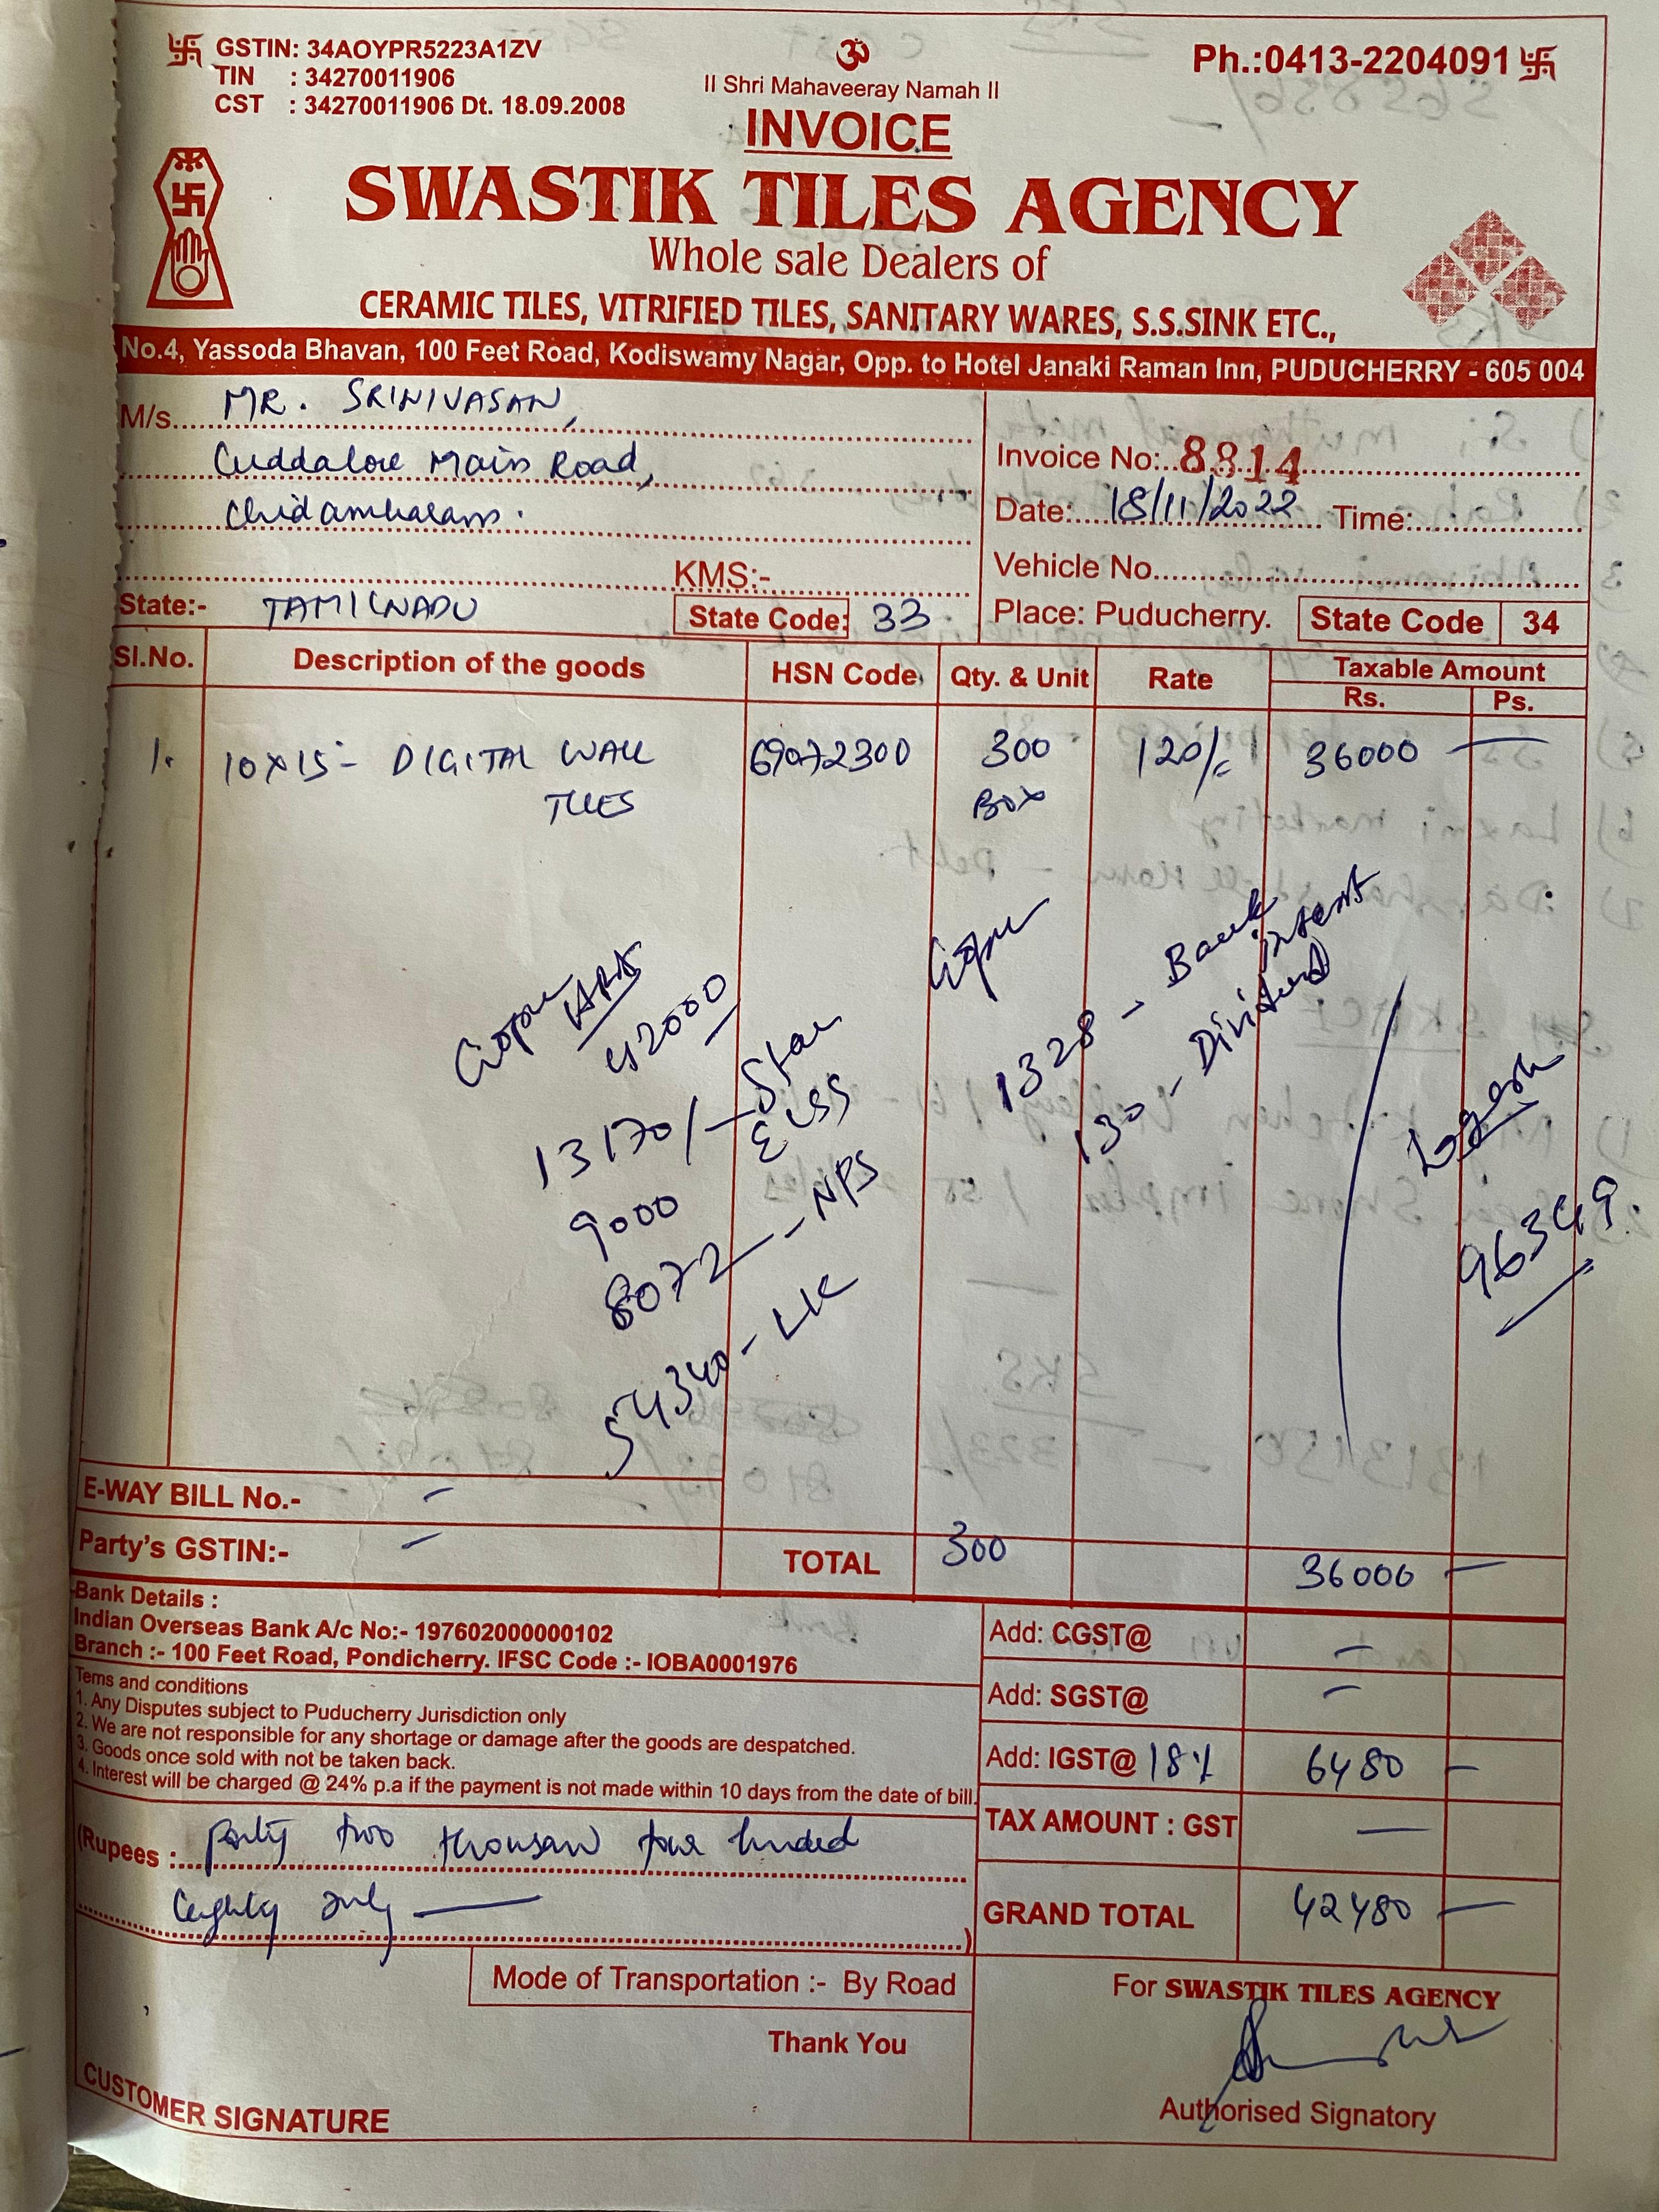 GSTIN: 34AOYPR5223A1ZV
TIN : 34270011906
CST : 34270011906 Dt. 18.09.2008
ॐ
II Shri Mahaveeray Namah II
Ph.:0413-2204091
INVOICE
SWASTIK TILES AGENCY
Whole sale Dealers of
CERAMIC TILES, VITRIFIED TILES, SANITARY WARES, S.S.SINK ETC.,
No.4, Yassoda Bhavan, 100 Feet Road, Kodiswamy Nagar, Opp. to Hotel Janaki Raman Inn, PUDUCHERRY - 605 004
M/s. MR. SRINIVASAN,
Cuddalore Main Road,
Chidambaram.
KMS:-
State:- TAMILNADU State Code: 33
Invoice No: 8814
Date: 18/11/2022 Time:
Vehicle No.
Place: Puducherry. State Code 34
Sl.No. Description of the goods HSN Code Qty. & Unit Rate Taxable Amount
Rs. Ps.
1. 10x15 - DIGITAL WALL 69072300 300 120/- 36000 —
TILES BOX
Gopu HRA
42000
13170/- Star
9000 ELSS
8072 - NPS
54340 - LIC
Gopu
1328 - Bank
interest
130 - Dividend
Logesh
96349
E-WAY BILL No.- -
Party's GSTIN:- -
TOTAL 300 36000 —
Bank Details :
Indian Overseas Bank A/c No:- 197602000000102
Branch :- 100 Feet Road, Pondicherry. IFSC Code :- IOBA0001976
Tems and conditions
1. Any Disputes subject to Puducherry Jurisdiction only
2. We are not responsible for any shortage or damage after the goods are despatched.
3. Goods once sold with not be taken back.
4. Interest will be charged @ 24% p.a if the payment is not made within 10 days from the date of bill.
Add: CGST@ -
Add: SGST@ -
Add: IGST@ 18% 6480 —
TAX AMOUNT : GST —
GRAND TOTAL 42480 —
(Rupees : Forty two thousan four hunded
Eighty only —)
Mode of Transportation :- By Road
Thank You
CUSTOMER SIGNATURE
For SWASTIK TILES AGENCY
Authorised Signatory